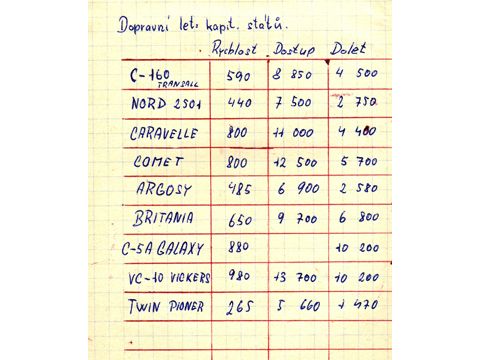 Dopravní let. kapit. států.
Rychlost Dostup Dolet
C-160 TRANSALL 590 8 850 4 500
NORD 2501 440 7 500 2 750
CARAVELLE 800 11 000 4 400
COMET 800 12 500 5 700
ARGOSY 485 6 900 2 580
BRITANIA 650 9 700 6 800
C-5A GALAXY 880 10 200
VC-10 VICKERS 980 13 700 10 200
TWIN PIONER 265 5 660 1 470